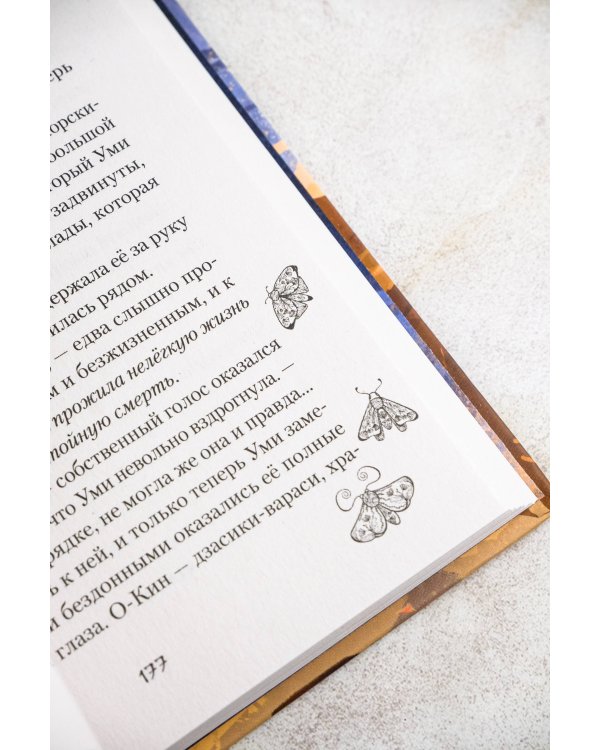 ерь
орски-
большой
торый Уми
задвинуты,
лады, которая
держала её за руку
илась рядом.
, — едва слышно про-
м и безжизненным, и к
прожила нелёгкую жизнь
покойную смерть.
собственный голос оказался
что Уми невольно вздрогнула. —
рядке, не могла же она и правда...
ь к ней, и только теперь Уми заме-
и бездонными оказались её полные
глаза. О-Кин — дзасики-вараси, хра-
177